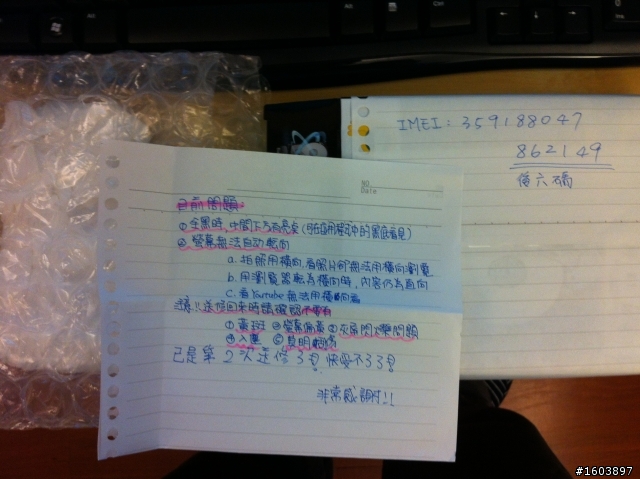 IMEI: 359188047
862149
後六碼
NO.
Date
目前問題
① 全黑時,中間下方有亮点(可在通用程式中的黑底看見)
② 螢幕無法自动転向
a. 拍照用橫向,看照片卻無法用橫向瀏覽
b. 用瀏覽器転為橫向時,內容仍為直向
c. 看Youtube無法用橫向看
送回來時請確認不要有
① 黃斑 ② 螢幕偏黃 ③ 灰屏閃爍問題
④ 入塵 ⑤ 其明
已是第2次送修了! 快受不了了!
非常感謝!!
#1603897